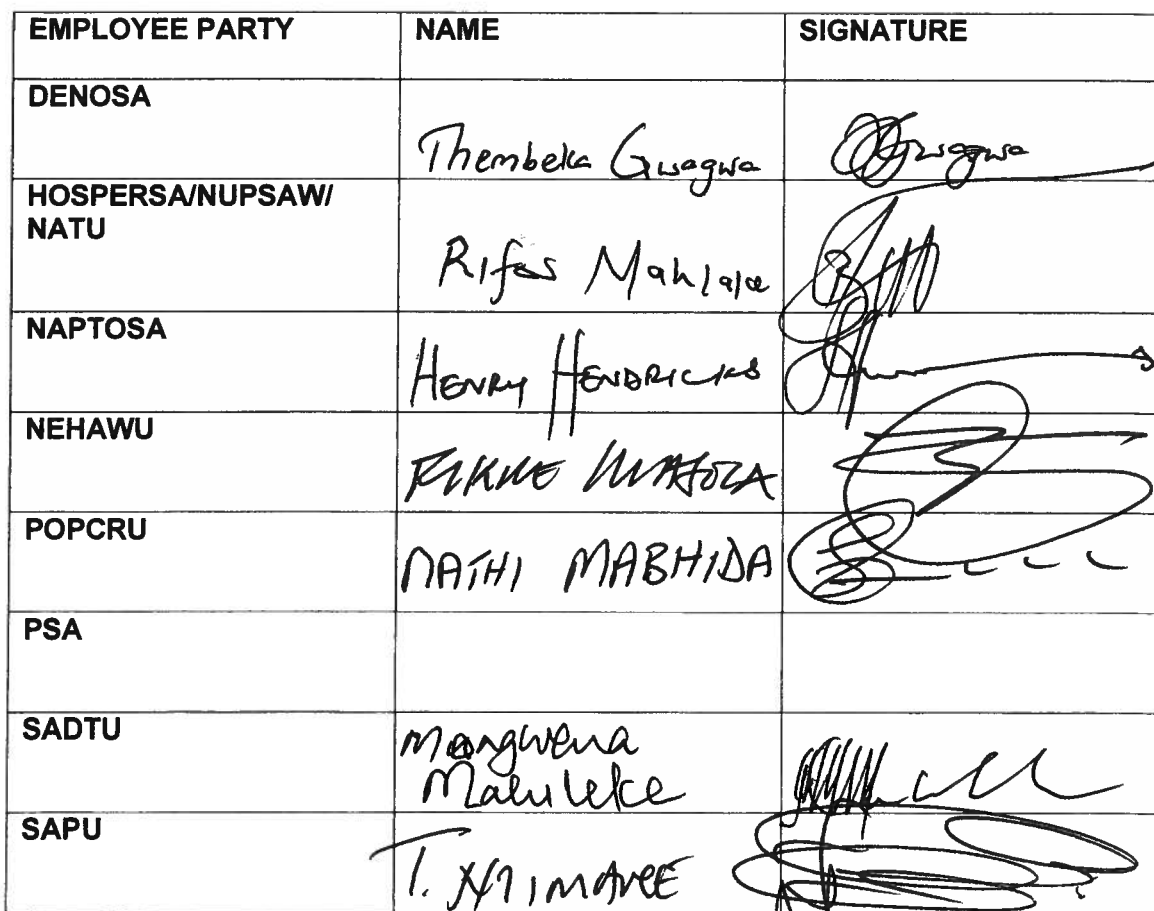 EMPLOYEE PARTY NAME SIGNATURE
DENOSA
Thembeka Gwagwa Gwagwa
HOSPERSA/NUPSAW/
NATU
Rifos Mahlale
NAPTOSA
HENRY HENDRICKS
NEHAWU
POPCRU
NATHI MABHIDA
PSA
SADTU
Mangwena
Maluleke
SAPU
T.